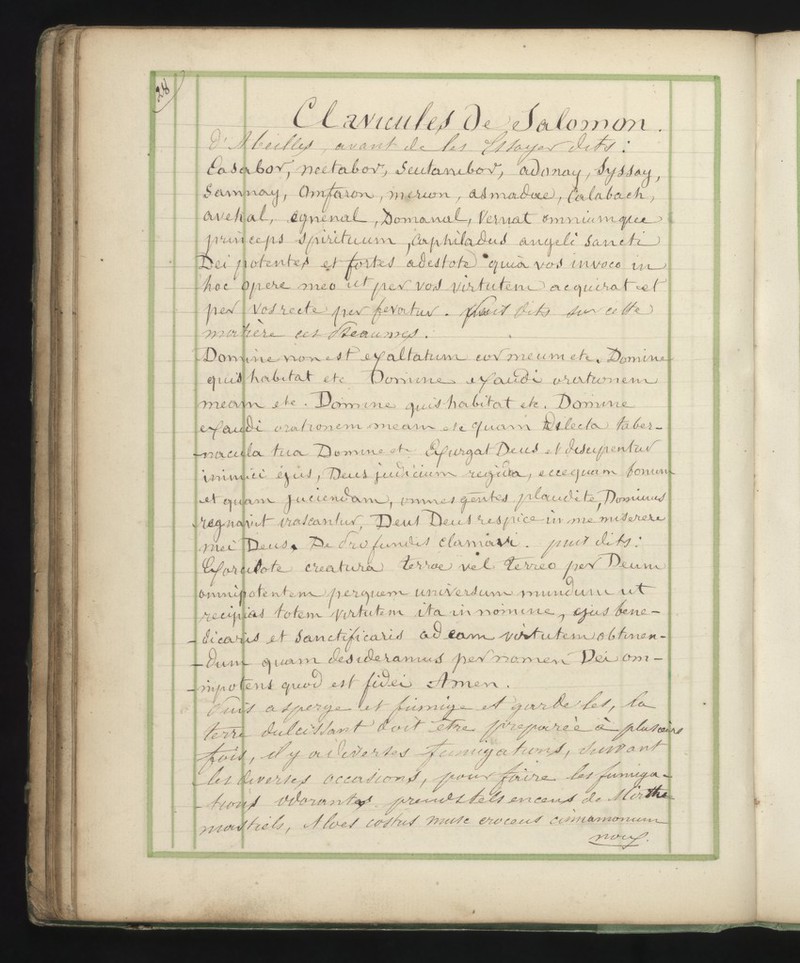 28
Clavicules de Salomon.
d'Abeilles, avant de les Essayer dits:
Casabor, nectabor, Seutanibor, adonay, Syssay,
Samnay, Omfaron, merion, asmadae, Calabach,
avehal, Egnenal, Domanal, Vernat omniumque
princeps spirituum, Caphiladus angeli sancti
Dei potentes et fortes adestote quia vos invoco in
hoc opere meo ut per vos virtutem acquirat et
per vos recte per feratur. puit dits sur cette
matière ces Pseaumes.
Domine non est exaltatum cor meum etc. Domine
quis habitat etc Domine exaudi orationem
meam etc. Domine quis habitat etc. Domine
exaudi orationem meam etc quam Dilecta taber-
-nacula tua Domine etc Exurgat Deus et disipentur
inimici ejus, Deus judicium regida, ecce quam bonum
et quam juciendam, omnes gentes plaudite, Dominus
regnavit irascantur, Deus Deus respice in me miserere
mei Deus. De Profundis clamavi. puit dits:
Exorcilote creatura terræ vel terreo per Deum
omnipotentem perquem universum mundum ut
recipias totem virtutem ita in nomine, ejus bene-
-dicaris et sanctificaris ad eam virtutem obtinen-
-dum quam desideramus per nomen Dei om-
-nipotens quod est fidei Amen.
Puis asperge et fumige et garde les, la
terre dulcissant doit être preparée à plusieurs
fois, il y a diverses fumigations, suivant
les diverses occasions, pour faire les fumiga-
-tions odorantes prends tels encens de Mirthe
mastich, Aloes costus musc croceus cinnamonum
noix.